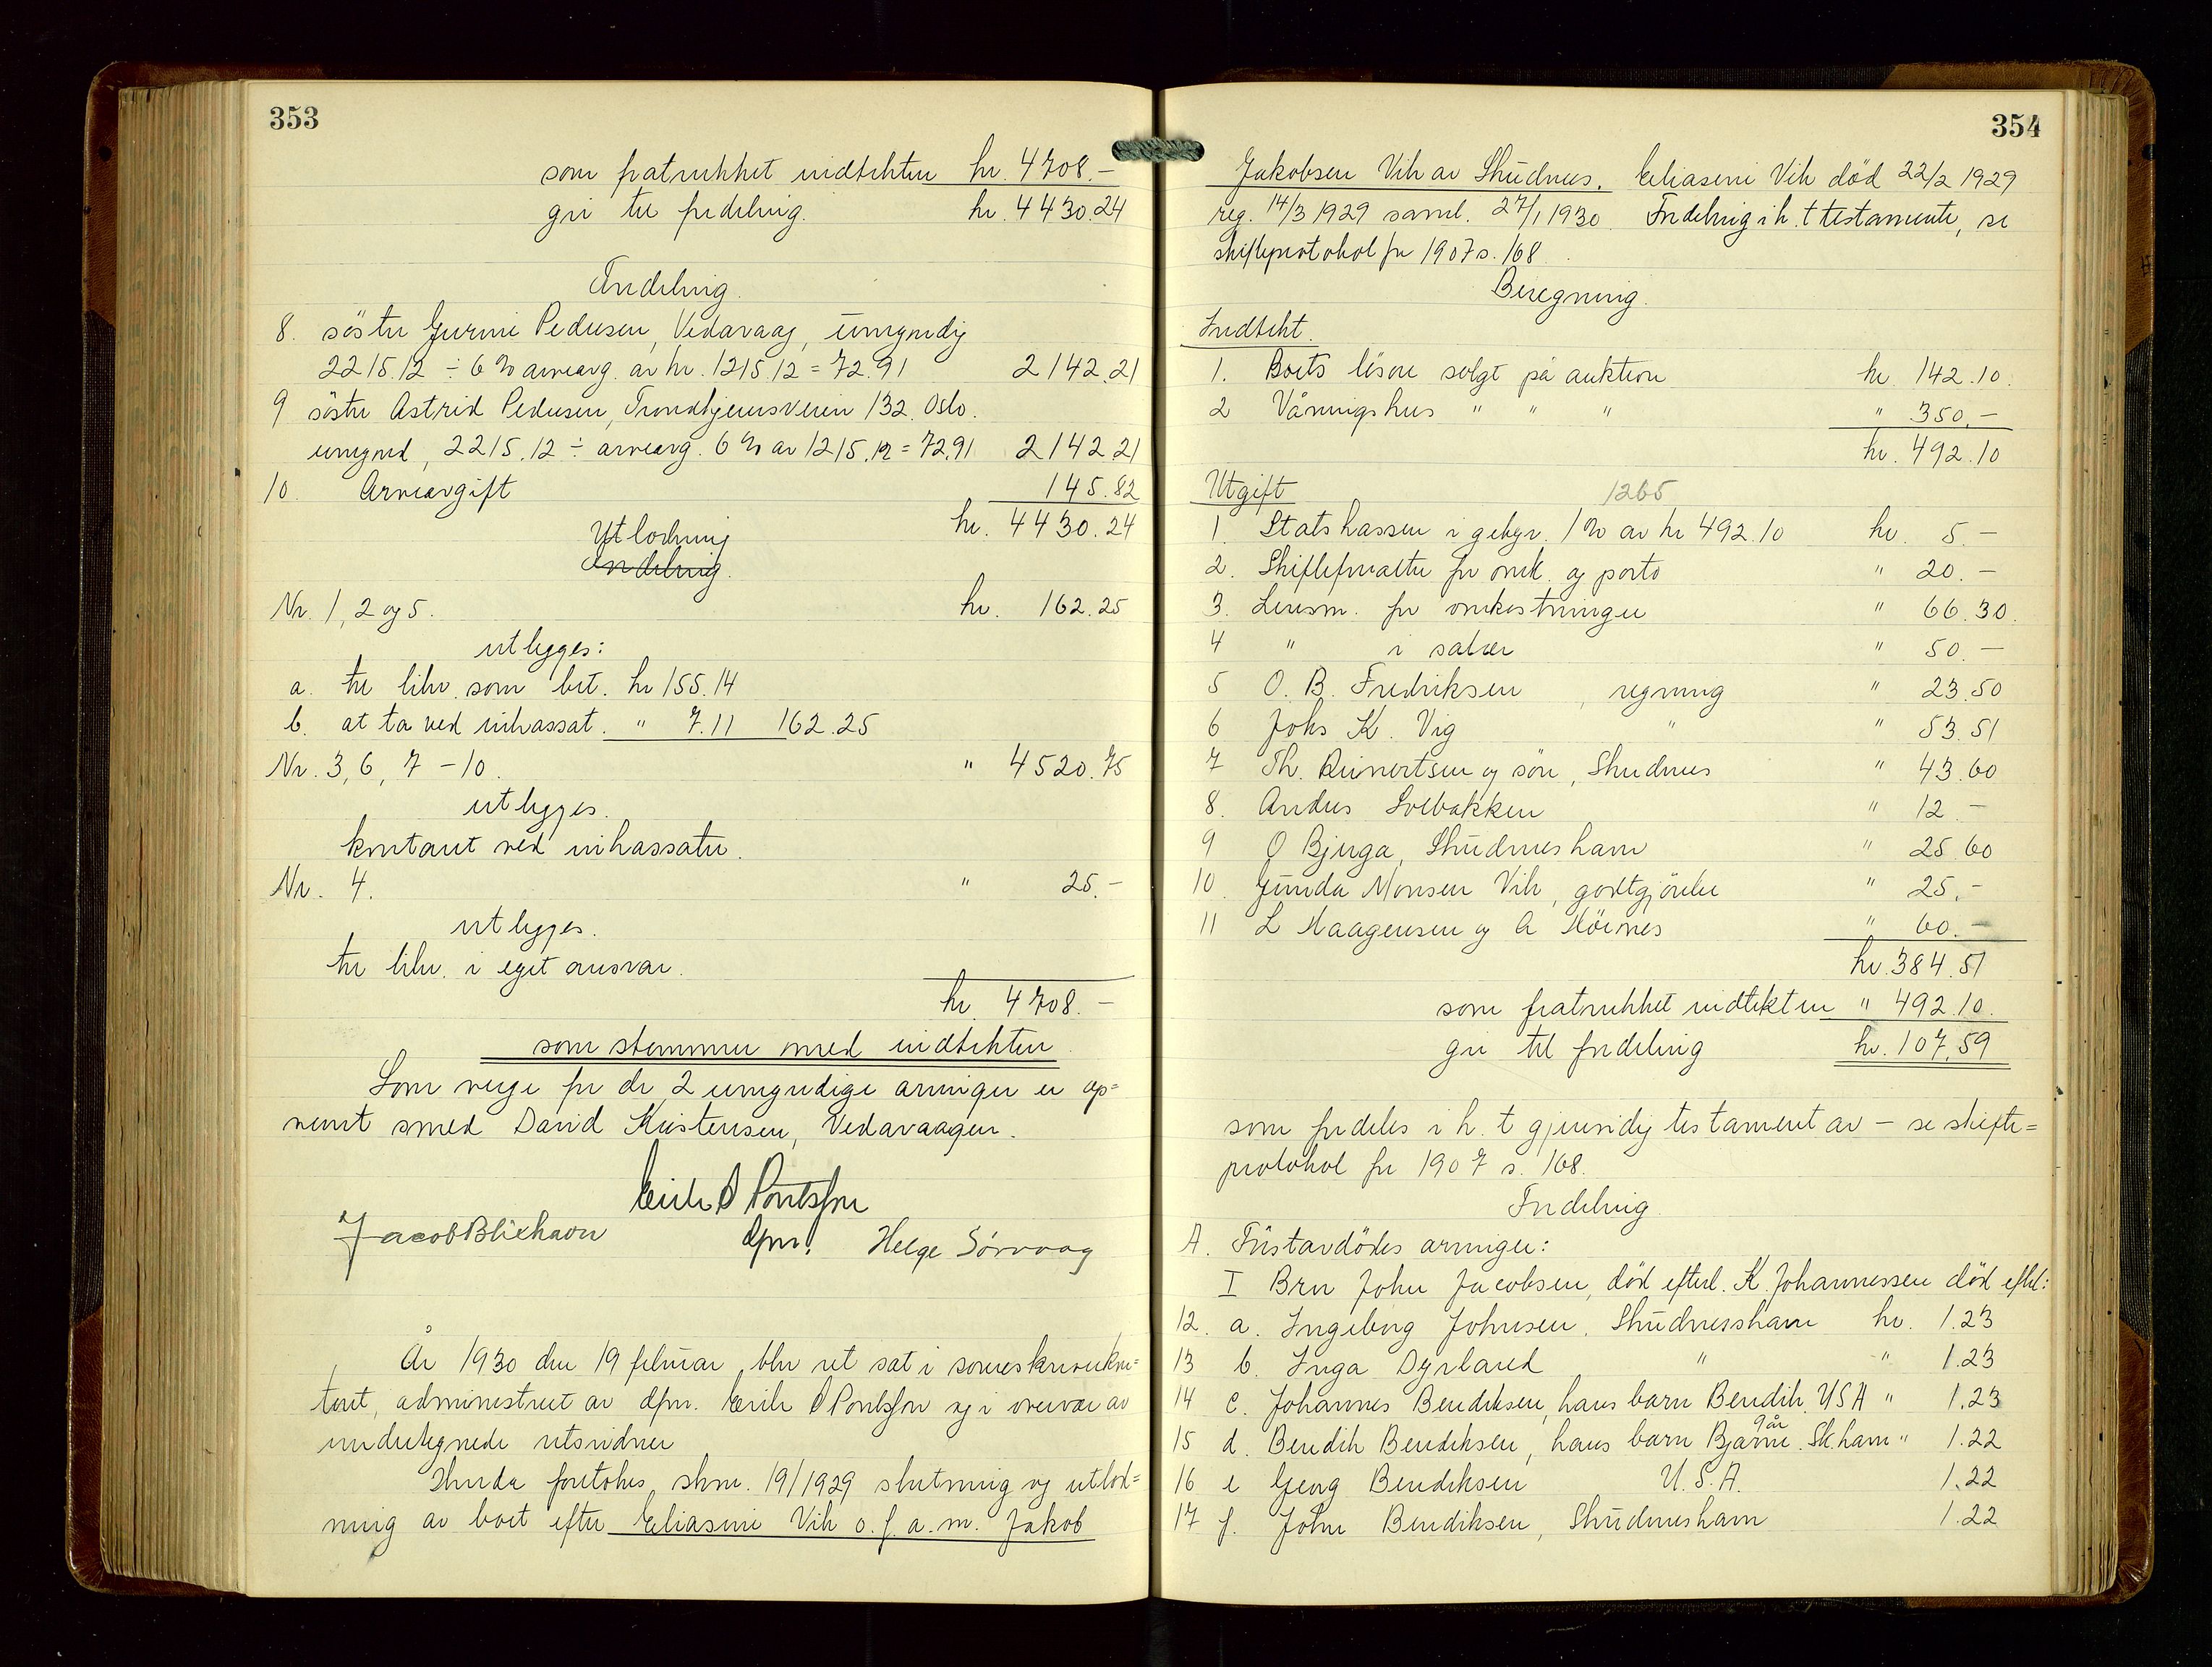 353
som fratrukket indtekten kr. 4708.-
gir til fordeling. kr. 4430.24
Fordeling.
8. söster Gurine Pedersen, Vedavaag, umyndig
2215.12 ÷ 6 % arveavg. av kr. 1215.12 = 72.91 2142.21
9 söster Astrid Pedersen, Trondhjemsveien 132. Oslo.
umynd, 2215.12 ÷ arveavg. 6 % av 1215.12 = 72.91 2142.21
10. Arveavgift 145.82
kr. 4430.24
Utlodning
Fordeling.
Nr. 1, 2 og 5. kr. 162.25
utlegges:
a. til likv. som bet. kr 155.14
b. at ta ved inkassat. " 7.11 162.25
Nr. 3, 6, 7 - 10. " 4520.75
utlegges.
kontant ved inkassator.
Nr. 4. " 25.-
utlegges.
til likv. i eget ansvar.
kr 4708.-
som stemmer med indtekten.
Som verge for de 2 umyndige arvinger er op=
nevnt smed David Kristensen, Vedavaagen.
Jacob Blikhavn dfm. Helge Sørvaag
År 1930 den 19 februar blev ret sat i sorenskriverkon=
toret, administreet av dfm. Eirik og i overvær av
undertegnede retsvidner
Hvorda foretokes skm. 19/1929 slutning og utlod=
ning av boet efter Eliasine Vik o.f.a.m. Jakob
354
Jakobsen Vik av Skudnes. Eliasine Vik död 22/2 1929
reg. 14/3 1929 saml. 27/1 1930. Fordeling i h.t testamente, se
skifteprotokol for 1907 s. 168.
Beregning.
Indtekt.
1. Boets lösöre solgt på auktion kr. 142.10.
2 Våningshus " " " " 350.-
kr. 492.10
Utgift 1265
1. Statskassen i gebyr. 1 % av kr 492.10 kr. 5.-
2. Skifteforvalter for omk. og porto " 20.-
3. Lensm. for omkostninger " 66.30.
4 " i salær " 50.-
5 O. B. Fredriksen, regning " 23.50
6 Johs K. Vig " " 53.51
7 Th. Reinertsen og sön, Skudnes " 43.60
8. Anders Solbakken " 12.-
9 O Bjerga, Skudneshavn " 25.60
10. Gunda Monsen Vik, godtgjörelse " 25.-
11 L Haagensen og A Höines " 60.-
kr. 384.51
som fratrukket indtekten " 492.10.
gir til fordeling kr. 107.59
som fordeles i h.t gjensidig testament av - se skifte=
protokol for 1907 s. 168.
Fordeling
A. Förstavdödes arvinger:
I Bror John Jacobsen, död efterl. K. Johannessen död eftl:
12. a. Ingeborg Johnsen, Skudneshavn kr. 1.23
13 b. Inga Dyrland " " 1.23
14 c. Johannes Bendiksen, hans barn Bendik, USA " 1.23
9 år
15 d. Bendik Bendiksen, hans barn Bjarne. Sk.havn " 1.22
16 e Georg Bendiksen U.S.A. 1.22
17 f. John Bendiksen, Skudneshavn 1.22